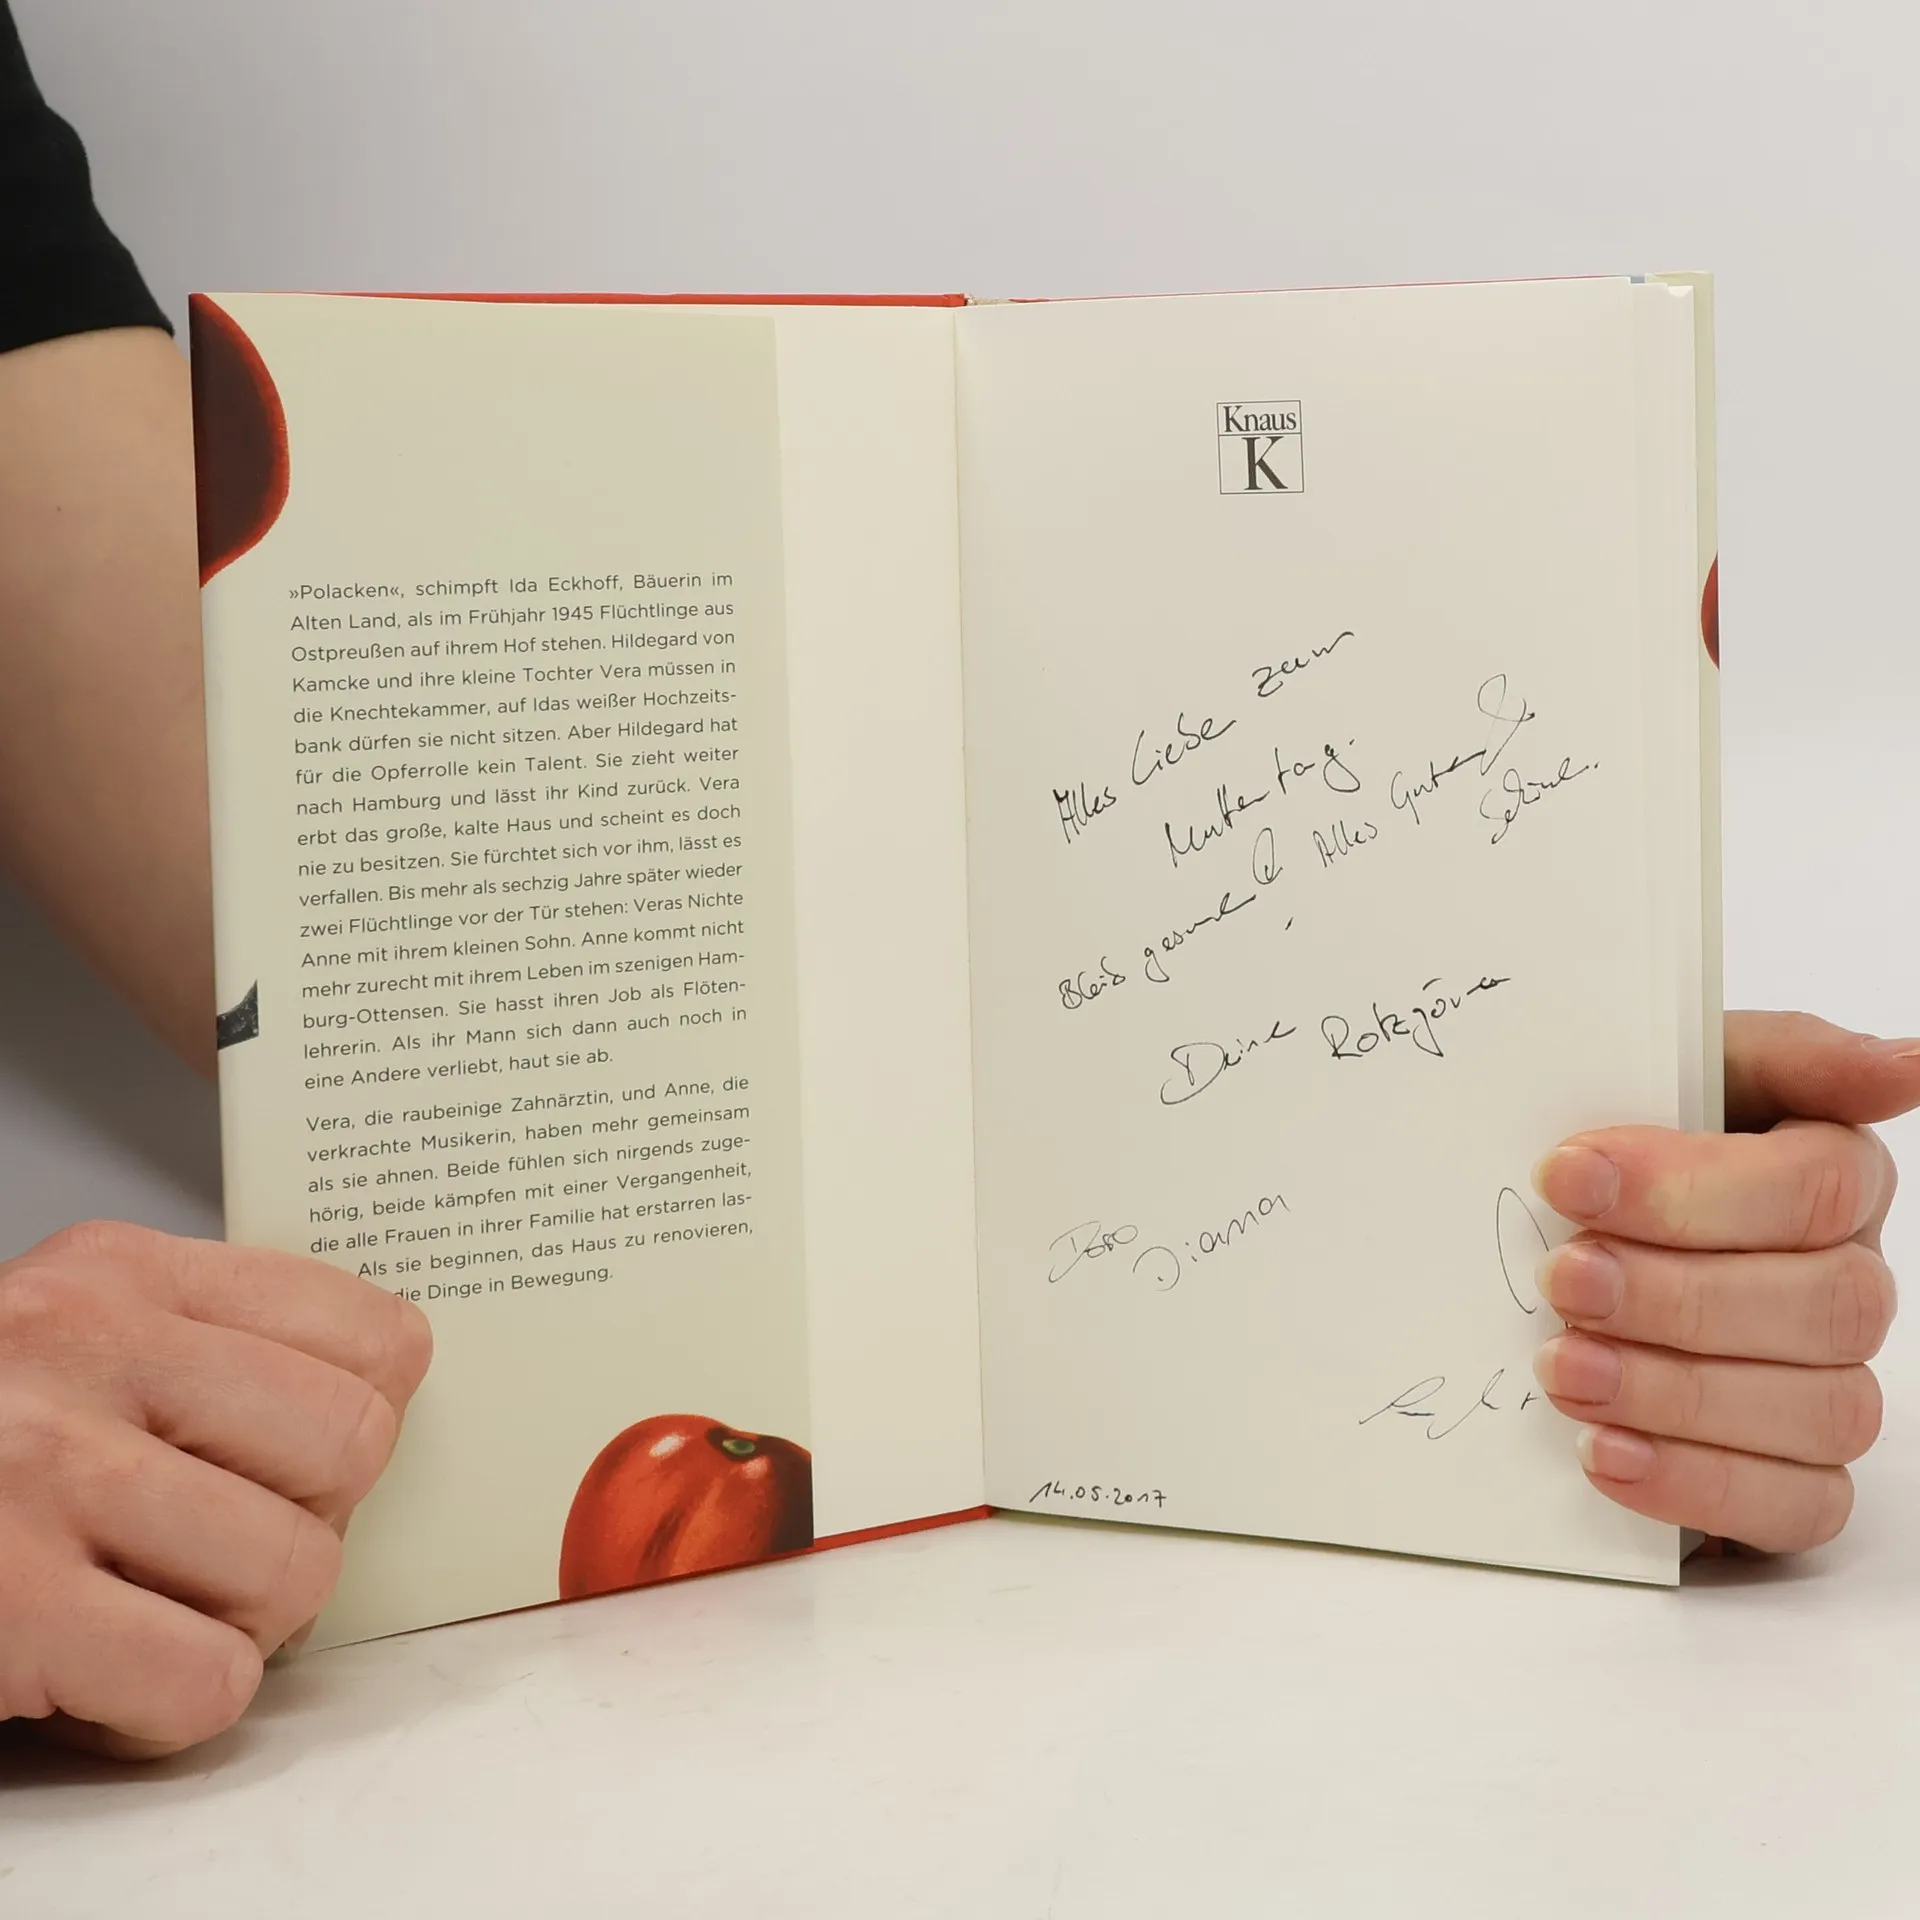 »Polacken«, schimpft Ida Eckhoff, Bäuerin im
Alten Land, als im Frühjahr 1945 Flüchtlinge aus
Ostpreußen auf ihrem Hof stehen. Hildegard von
Kamcke und ihre kleine Tochter Vera müssen in
die Knechtekammer, auf Idas weißer Hochzeits-
bank dürfen sie nicht sitzen. Aber Hildegard hat
für die Opferrolle kein Talent. Sie zieht weiter
nach Hamburg und lässt ihr Kind zurück. Vera
erbt das große, kalte Haus und scheint es doch
nie zu besitzen. Sie fürchtet sich vor ihm, lässt es
verfallen. Bis mehr als sechzig Jahre später wieder
zwei Flüchtlinge vor der Tür stehen: Veras Nichte
Anne mit ihrem kleinen Sohn. Anne kommt nicht
mehr zurecht mit ihrem Leben im szenigen Ham-
burg-Ottensen. Sie hasst ihren Job als Flöten-
lehrerin. Als ihr Mann sich dann auch noch in
eine Andere verliebt, haut sie ab.
Vera, die raubeinige Zahnärztin, und Anne, die
verkrachte Musikerin, haben mehr gemeinsam
als sie ahnen. Beide fühlen sich nirgends zuge-
hörig, beide kämpfen mit einer Vergangenheit,
die alle Frauen in ihrer Familie hat erstarren las-
Als sie beginnen, das Haus zu renovieren,
die Dinge in Bewegung.
Knaus
K
Alles Liebe zum
Muttertag.
Bleib gesund & Alles Gute &
Schöne.
Deine Rotzgören
Doro
Diana
14.05.2017